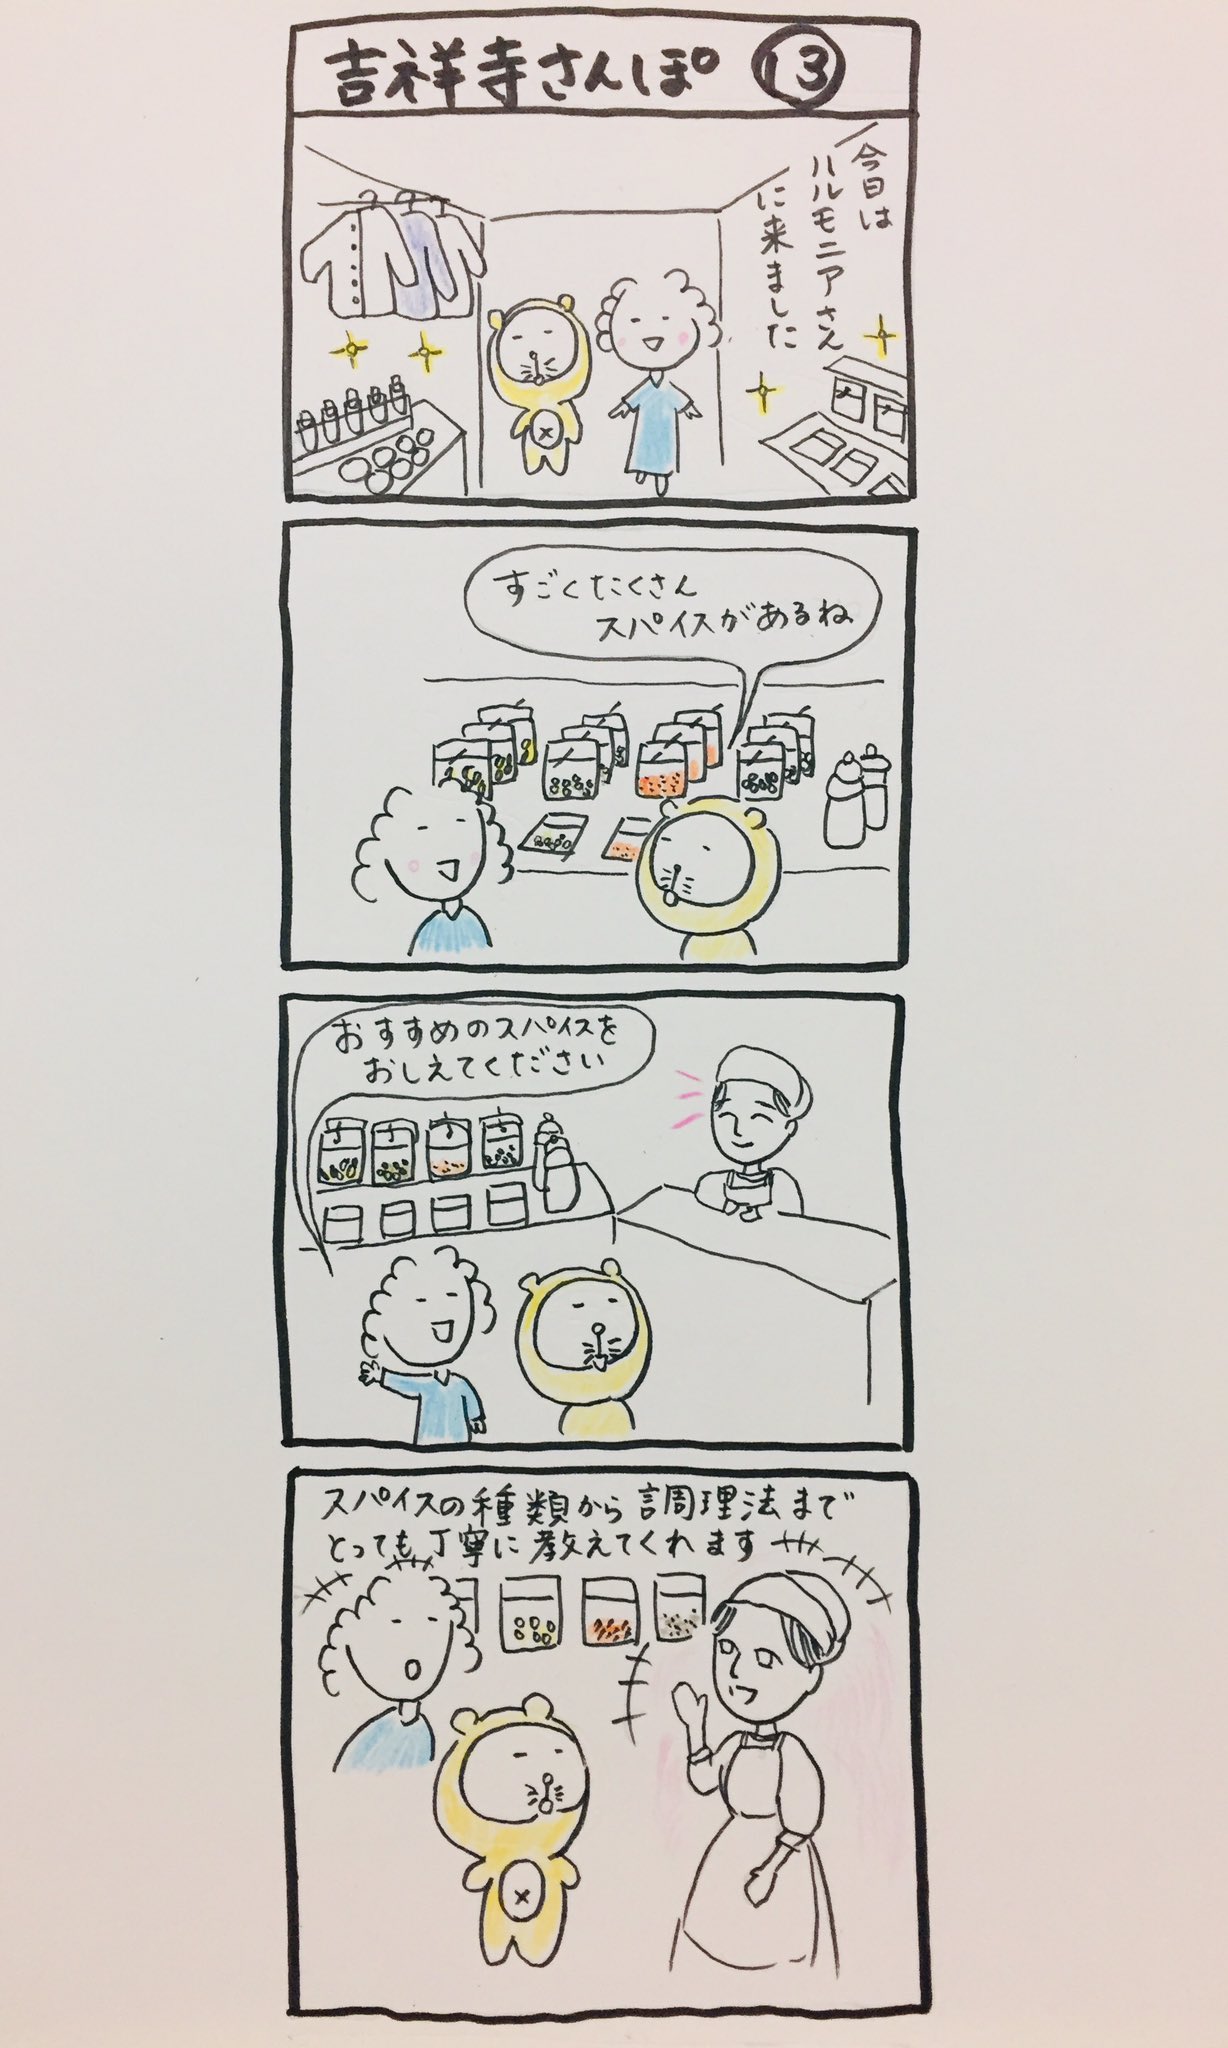 吉祥寺さんぽ ⑬
今日は
ハルモニアさん
に来ました
すごくたくさん
スパイスがあるね
おすすめのスパイスを
おしえてください
スパイスの種類から調理法まで
とっても丁寧に教えてくれます